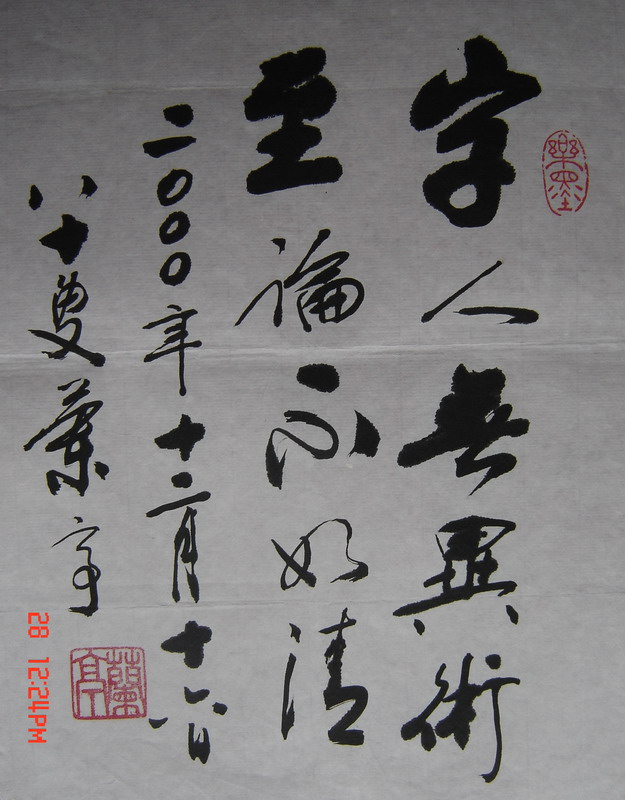 樂墨
字人無異術
至論不如清
二〇〇〇年十二月十六日
八十叟蘭亭
蘭亭
28 12:24PM